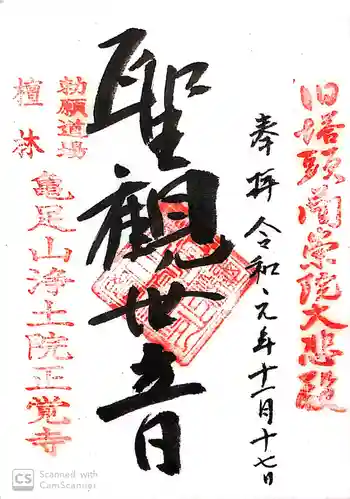 旧塔頭蘭栄院大悲殿
奉拝 令和元年十一月十七日
聖觀世音
勅願道場
檀林
亀足山浄土院正覚寺
CS Scanned with
CamScanner